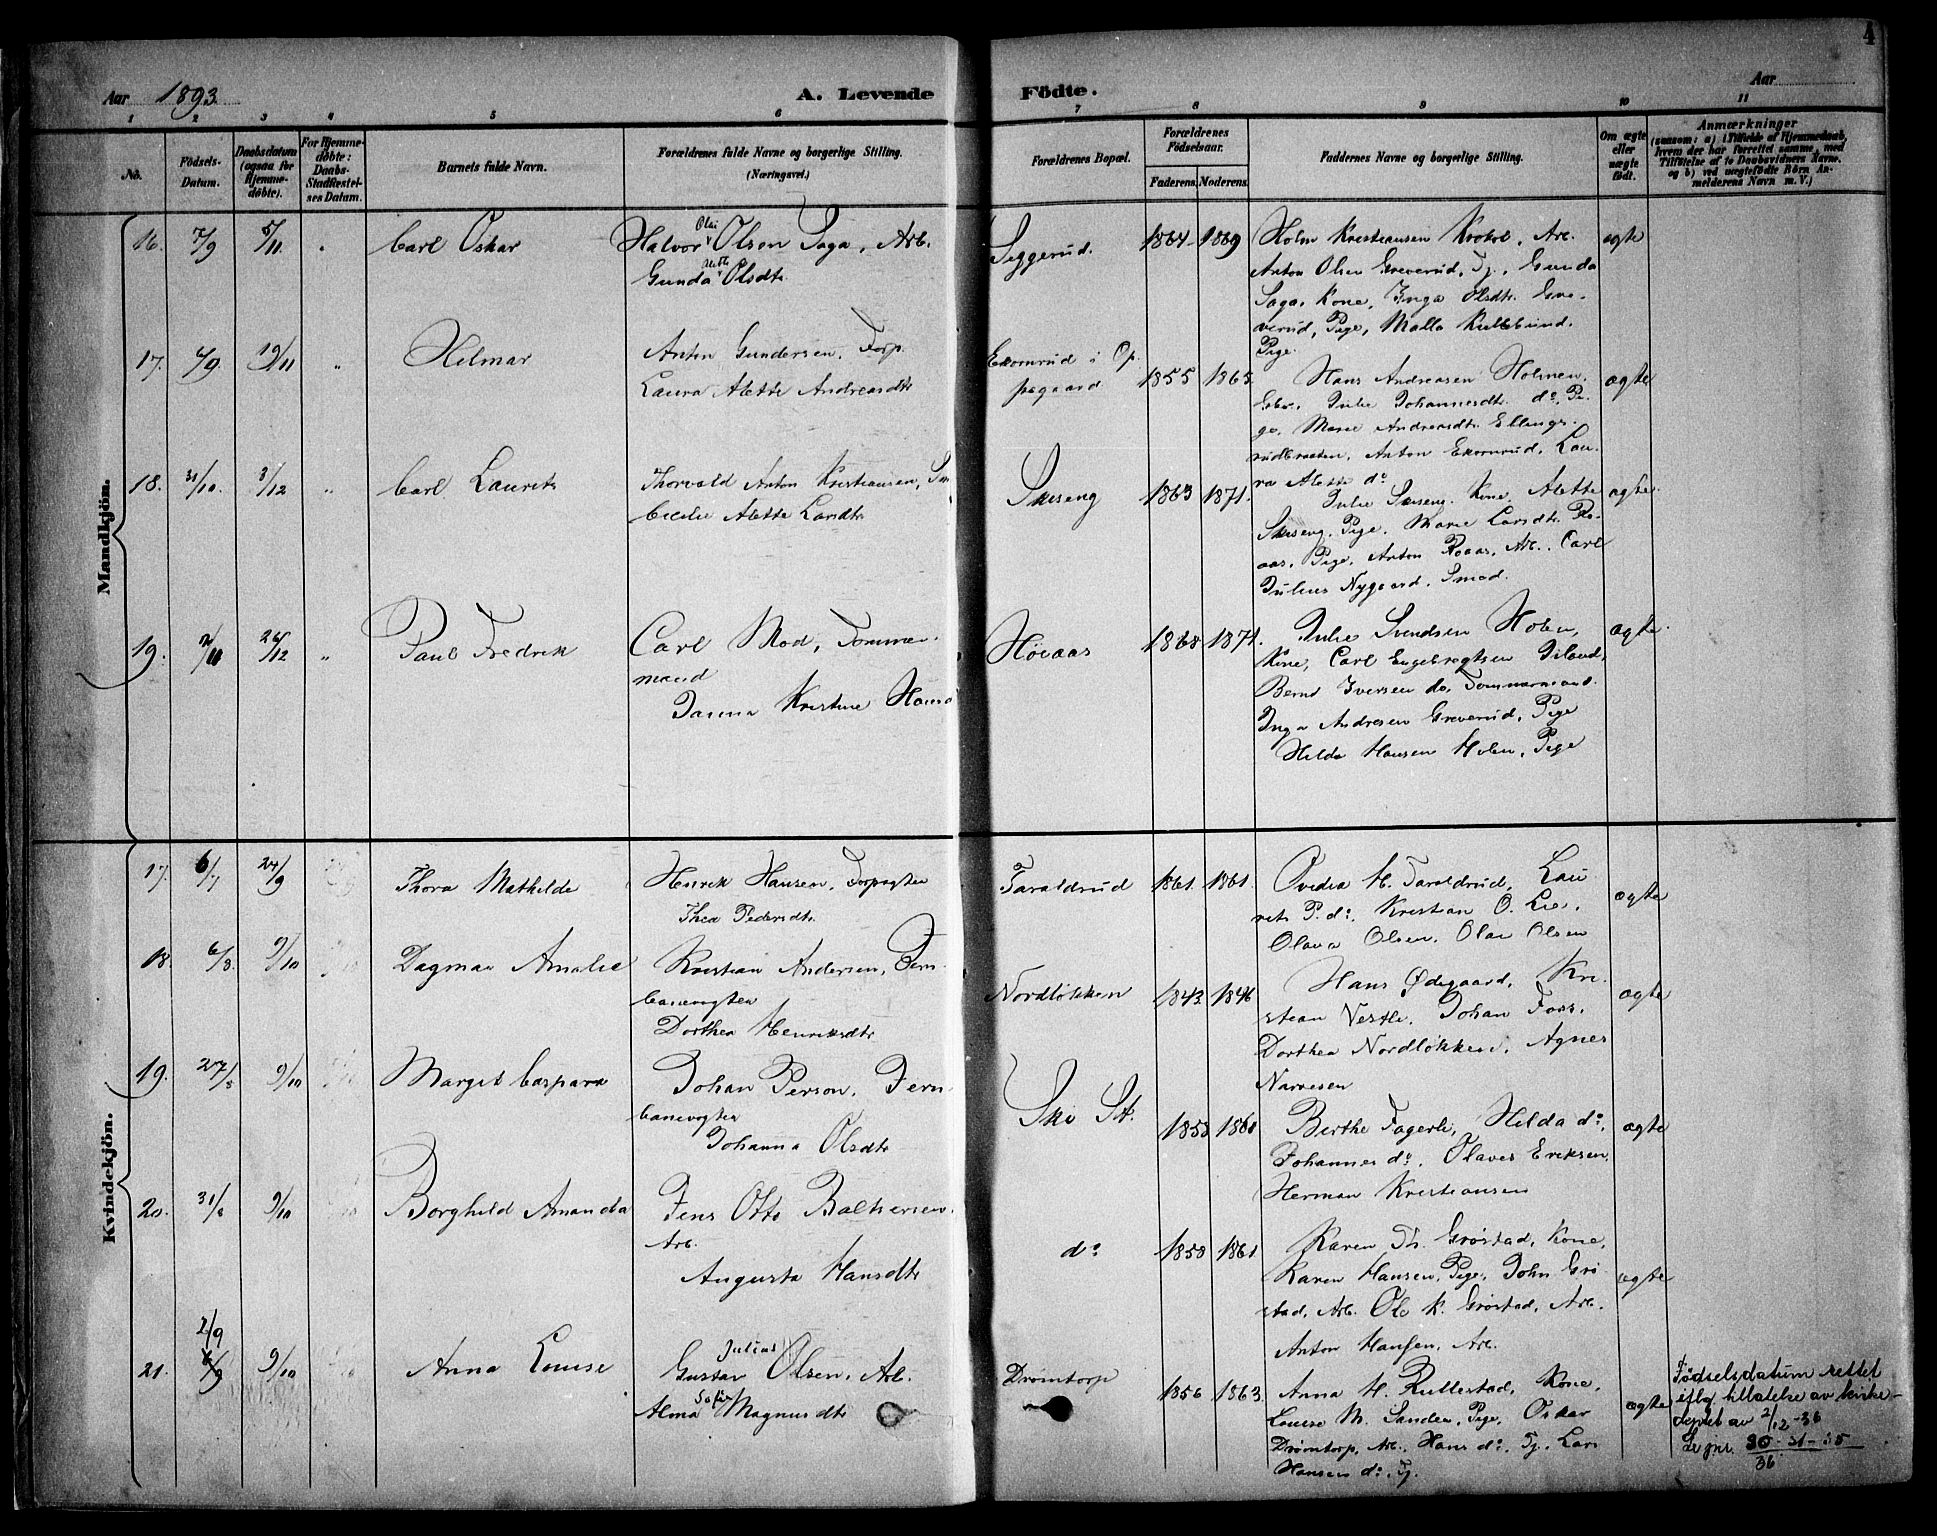 4
Aar 1893.
A. Levende Födte.
Aar
1 2 3 4 5 6 7 8 9 10 11
No.
Födsels-
Datum.
Daabsdatum
(ogsaa for
Hjemme-
döbte).
For Hjemme-
döbte:
Daabs-
Stadfæstel-
ses Datum.
Barnets fulde Navn.
Forældrenes fulde Navne og borgerlige Stilling.
(Næringsvei.)
Forældrenes Bopæl.
Forældrenes
Födselsaar.
Faderens. Moderens.
Faddernes Navne og borgerlige Stilling.
Om ægte
eller
uægte
födt.
Anmærkninger
(saasom: a) i Tilfælde af Hjemmedaab,
hvem der har forrettet samme, med
Tilföielse af to Daabsvidners Navne,
og b) ved uægtefödte Börn An-
melderens Navn m. V.)
Mandkjön.
16. 7/9 5/11 " Carl Oskar
Halvor Olai Olsen Saga, Arb.
Gunda Olsdtr.
Siggerud.
1864. 1869
Holm Kristiansen Krokol, Arb.
Anton Olsen Greverud, Tj., Gunda
Saga, Kone, Inga Olsdtr. Gre-
verud, Pige, Malla Kullebund,
Pige.
ægte
17. 4/9. 19/11 " Hilmar
Anton Gundersen, Forp.
Laura Alette Andreasdtr
Ekornrud i Op-
pegaard
1855 1865.
Hans Andreasen Holmen,
Gbr. Julie Johannesdtr. do, Pi-
ge, Marie Andreasdtr. Ellings-
rudbraaten, Anton Ekornrud, Lau-
ra Alette do
ægte
18. 31/10. 3/12 " Carl Laurits
Thorvald Anton Kristiansen, Sm
Cecilie Alette Larsdtr
Skiseng
1863 1871.
Julie Skiseng, Kone, Alette
Skiseng, Pige, Marie Larsdtr. Ro-
aas, Pige, Anton Roaas, Arb., Carl
Julius Nygaard, Smed.
ægte.
19. 2/11 26/12 " Paul Fredrik
Carl Mod, Tømmer-
mand
Janna Kristine Hansd
Høiaas
1868 1871.
Julie Svendsen Holm,
Kone, Carl Engebregtsen Jiland,
Bernt Iversen do, Tømmermænd.
Inga Andresen Greverud, Pige
Hilda Hansen Holm, Pige
ægte.
Kvindekjön.
17. 6/7 24/9 Thora Mathilde
Henrik Hansen, Forpagter
Thea Pedersdtr.
Taraldrud
1861. 1861.
Ovedia M. Taraldrud, Lau-
rits P. do, Kristian O. Lie,
Olava Olsen, Olai Olsen
ægte
18. 6/8. 9/10 Dagmar Amalie
Kristian Andersen, Jern-
banevogter
Dorthea Henriksdtr
Nordløkken
1843. 1846
Hans Ødegaard, Kri-
stian Vestli, Johan Foss,
Dorthea Nordløkken, Agnes
Narvesen
ægte
19. 27/8 9/10 Margit Caspara
Johan Person, Jern-
banevogter
Johanna Olsdtr
Ski St.
1853 1860
Berthe Fagerli, Hilda do,
Johannes do, Olaves Eriksen,
Herman Kristiansen
ægte
20. 31/8 9/10 Borghild Amanda
Jens Otto Baltsersen,
Arb.
Augusta Hansdtr
do
1858 1861.
Karen Th. Grøstad, Kone,
Karen Hansen, Pige, John Grø-
stad, Arb. Ole K. Grøstad, Arb.
Anton Hansen, Arb.
ægte
21. 2/9 6/9 9/10 Anna Louise
Gustav Julius Olsen, Arb.
Alma Sofie Magnusdtr
Drømtorp
1856 1863.
Anna M. Rullestad, Kone,
Louise M. Sander, Pige, Oskar
Drømtorp, Arb., Hans do, Tj., Lars
Hansen do, Tj.
ægte
Födselsdatum rettet
iflg. tillatelse av kirke-
dept. av 2/12-36
36